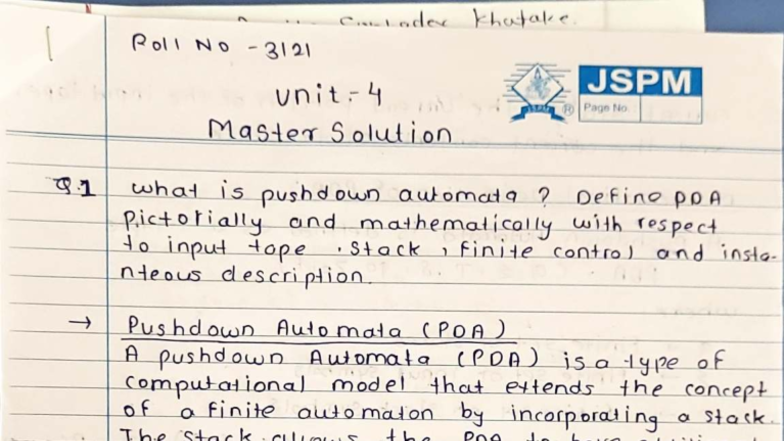 Khatake.
Roll No - 3121
JSPM
Page No.
Unit:- 4
Master Solution
Q.1 what is pushdown automata ? Define PDA
pictorially and mathematically with respect
to input tape . Stack , finite control and insta-
nteous description.
→ Pushdown Automata (PDA)
A pushdown Automata (PDA) is a type of
computational model that extends the concept
of a finite automaton by incorporating a stack.
The stack allows the PDA to have